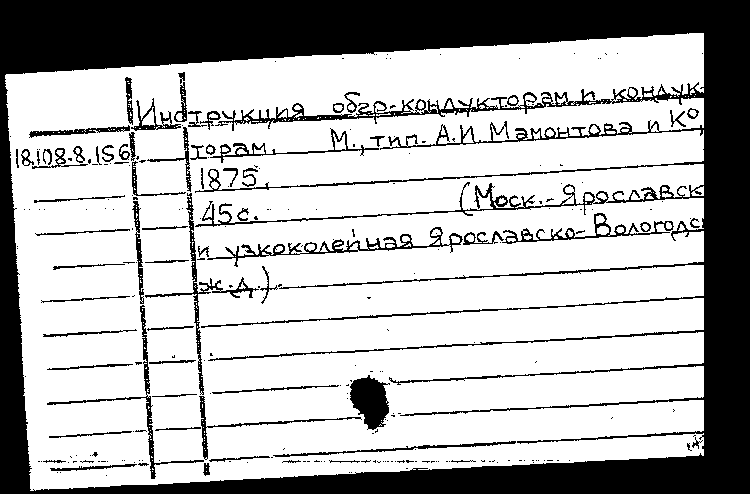 Инструкция обер-кондукторам и кондук-
18.108.8.156. торам. М., тип. А.И. Мамонтова и К°,
1875.
45с. (Моск.-Ярославск
и узкоколейная Ярославско-Вологодс
ж.д.).